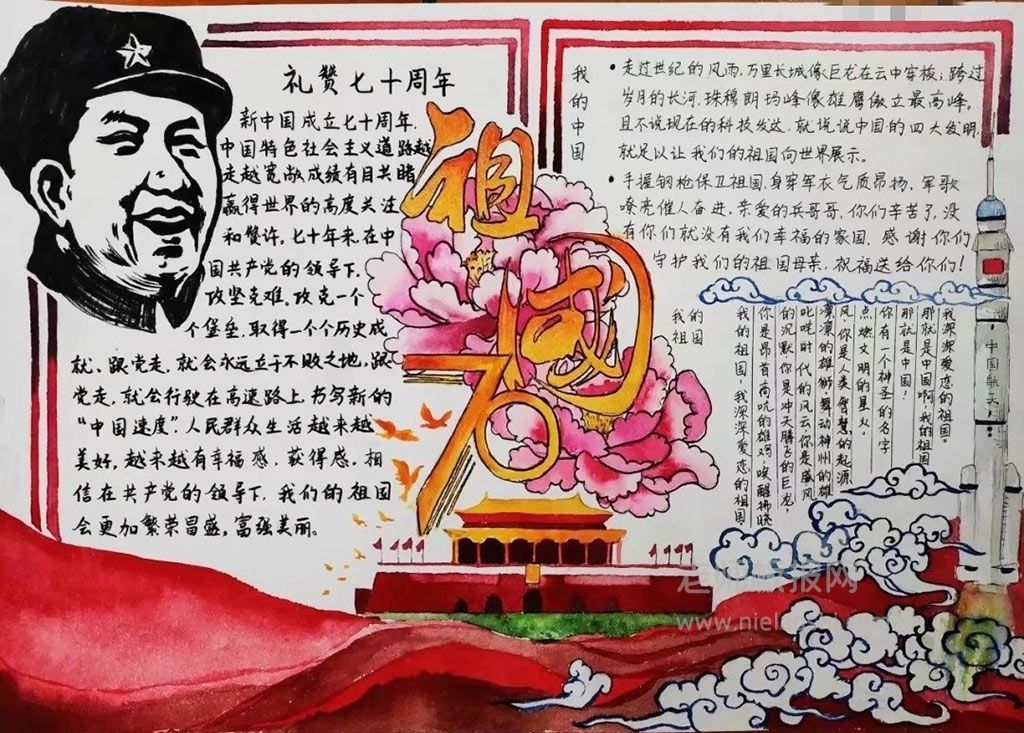 礼赞七十周年
新中国成立七十周年,
中国特色社会主义道路越
走越宽敞成绩有目共睹,
赢得世界的高度关注
和赞许,七十年来,在中
国共产党的领导下,
攻坚克难,攻克一个
个堡垒,取得一个个历史成
就、跟党走,就会永远立于不败之地,跟
党走,就会行驶在高速路上,书写新的
“中国速度”,人民群众生活越来越
美好,越来越有幸福感,获得感,相
信在共产党的领导下,我们的祖国
会更加繁荣昌盛,富强美丽。
祖国
70
我的中国
•走过世纪的风雨,万里长城像巨龙在云中穿梭;跨过
岁月的长河,珠穆朗玛峰像雄鹰傲立最高峰。
且不说现在的科技发达,就说说中国的四大发明,
就足以让我们的祖国向世界展示。
•手握钢枪保卫祖国,身穿军衣气质昂扬,军歌
嘹亮催人奋进,亲爱的兵哥哥,你们辛苦了,没
有你们就没有我们幸福的家国,感谢你们
守护我们的祖国母亲,祝福送给你们!
我的祖国
我深深爱恋的祖国。
那就是中国啊,我的祖国
那就是中国!
你有一个神圣的名字
点燃文明的星火,
风,你是人类智慧的起源
凛凛的雄狮,舞动神州的雄
叱咤时代的风云,你是威风
的沉默,你是冲天腾飞的巨龙,
你是昂首高吭的雄鸡,唤醒拂晓
我的祖国,我深深爱恋的祖国
中国航天